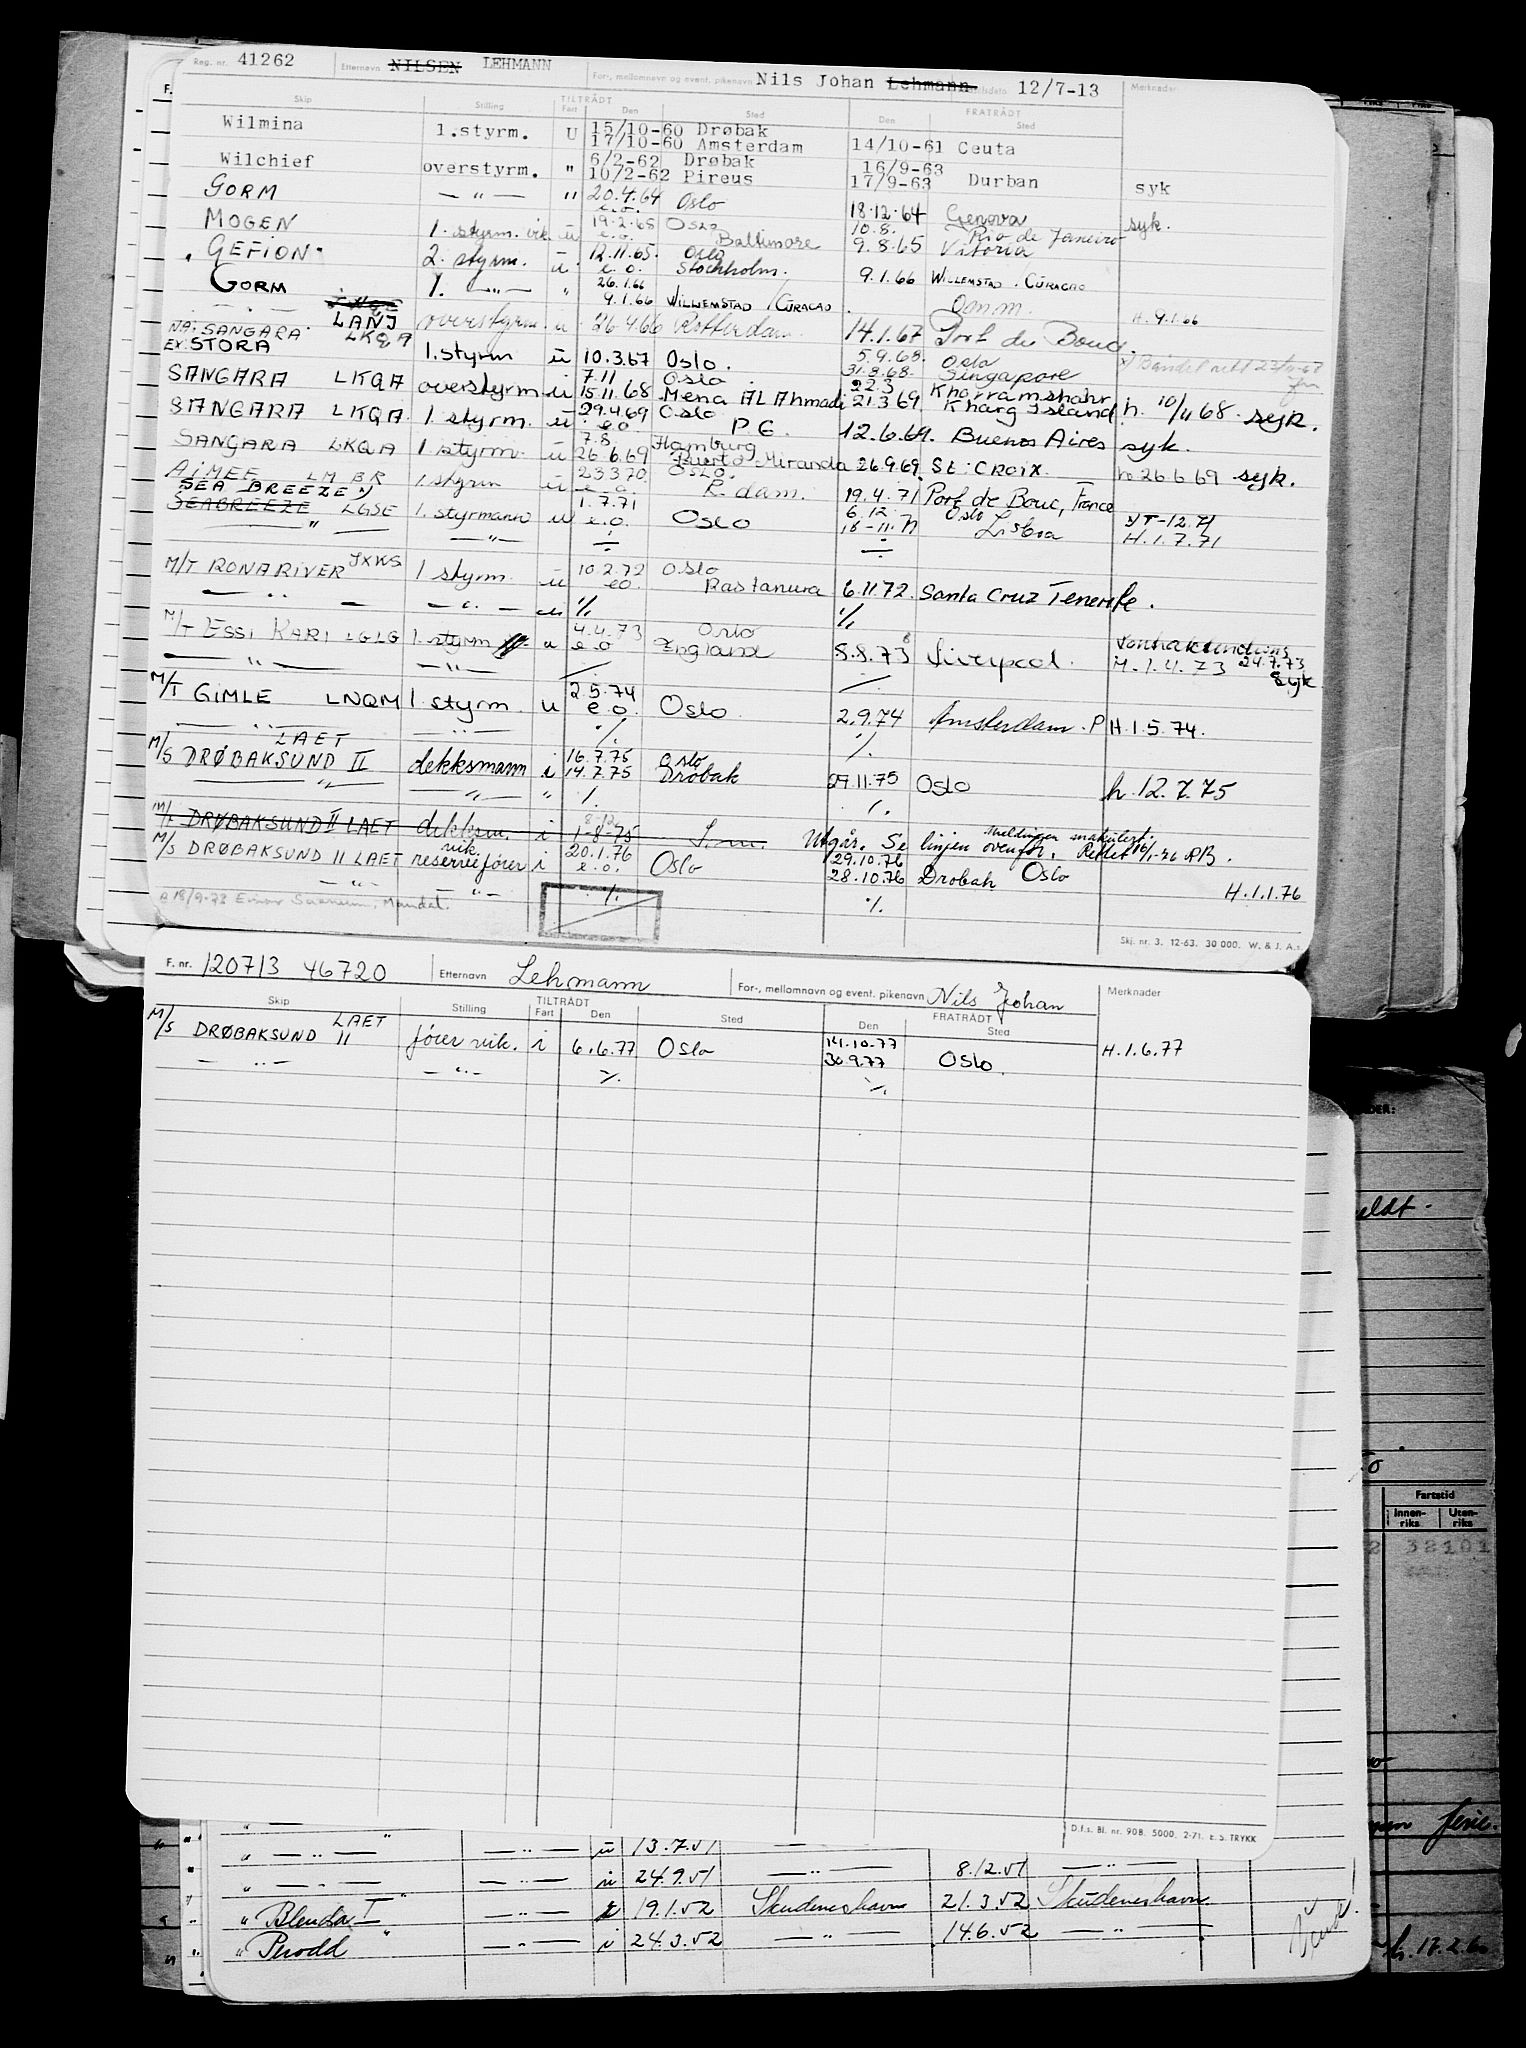 Reg. nr. 41262 Etternavn NILSEN LEHMANN For-, mellomnavn og event. pikenavn Nils Johan Lehmann 12/7-13 Merknader
Skip Stilling TILTRÅDT Fart Den Sted FRATRÅDT Den Sted
Wilmina 1.styrm. U 15/10-60 Drøbak
17/10-60 Amsterdam 14/10-61 Ceuta
Wilchief overstyrm. " 6/2-62 Drøbak 16/9-63
10/2-62 Pireus 17/9-63 Durban syk
GORM — " — " 20.4.64 Oslo 18.12.64 Genova syk.
e.o.
MOGEN 1. styrm. vik. u 19.2.65 Oslo 10.8. Rio de Janeiro
e.o. Baltimore 9.8.65 Vitoria
GEFION 2. styrm. u 12.11.65. Oslo
e.o. Stockholm. 9.1.66 WILLEMSTAD. CURACAO
GORM 1. — " — " 26.1.66
9.1.66 WILLEMSTAD / CURACAO Omm. H. 9.1.66
LANJ overstyrm. u 26.4.66 Rotterdam 14.1.67 Port de Bouc.
NÅ: SANGARA LKQA
EX: STORA 1. styrm u 10.3.67 Oslo. 5.9.68. Oslo
31.8.68. Singapore
SANGARA LKQA overstyrm u 7.11 Oslo 22.3 Khorramshahr
15.11.68 Mena AL Ahmadi 21.3.69 Kharg Island h. 10/11 68. syk.
SANGARA LKQA. 1. styrm. u 29.4.69 Oslo
e.o P.G. 12.6.69. Buenos Aires syk.
SANGARA LKQA 1. styrm. u 7.8. Hamburg
26.6.69 Puerto Miranda 26.9.69 St: CROIX. h 26.6.69 syk.
AIMEE LMBR 1. styrm u 23.3.70. OSLO.
e.o. R.dam. 19.4.71 Port de Bouc, France
SEA BREEZE
SEABREEZE LGSE 1. styrmann u 1.7.71 6.12. Oslo T-12.71
e.o. Oslo 18-11.71 Lisboa H.1.7.71
— " — — " — ÷ ÷
M/T RONA RIVER JXWS 1 styrm. u 10.2.72 Oslo
eo. Rastanura 6.11.72. Santa Cruz Tenerife.
— " — — " — u % %
M/T ESSI KARI LGLG 1. styrm u 4.4.73 Oslo
e.o England 8.8.73 Liverpool. H.1.4.73 24.7.73
syk
— " — — " — % %
M/T GIMLE LNQM 1. styrm. u 2.5.74
e.o. Oslo 2.9.74 Amsterdam. P H.1.5.74.
— " — — " — % %
M/S DRØBAKSUND II LAET dekksmann i 16.7.75 Oslo
14.7.75 Drøbak 27.11.75 Oslo h.12.7.75
— " — — " — " % %
M/F DRØBAKSUND II LAET dekksm. i 8-12
1-8-75 Utgår. Se linjen ovenfor. Meldingen makulert. Rettet 16/1-76 RB.
M/S DRØBAKSUND II LAET vik. reservefører i 20.1.76 29.10.76
e.o. Oslo 28.10.76 Drøbak Oslo H.1.1.76
— " — — " — % %
Skj. nr. 3. 12-63. 30 000. W. & J. A.s
F. nr. 120713 46720 Etternavn Lehmann For-, mellomnavn og event. pikenavn Nils Johan Merknader
Skip Stilling TILTRÅDT Fart Den Sted FRATRÅDT Den Sted
M/S DRØBAKSUND II LAET fører vik. i 6.6.77 Oslo 14.10.77
30.9.77 Oslo. H.1.6.77
— " — — " — % %
D.f.s. Bl. nr. 908. 5000. 2-71. E.S. TRYKK
" — " — — " — u 13.7.51
" — " — — " — u 24.9.51 — " — 8.12.51 — " —
" Blenda I " — " — 19.1.52 Skudeneshavn 21.3.52 Skudeneshavn
" Perodd " — " — i 24.3.52 — " — 14.6.52 — " —
Fartstid
Innen-riks Uten-riks
32101
h. 17.2.60